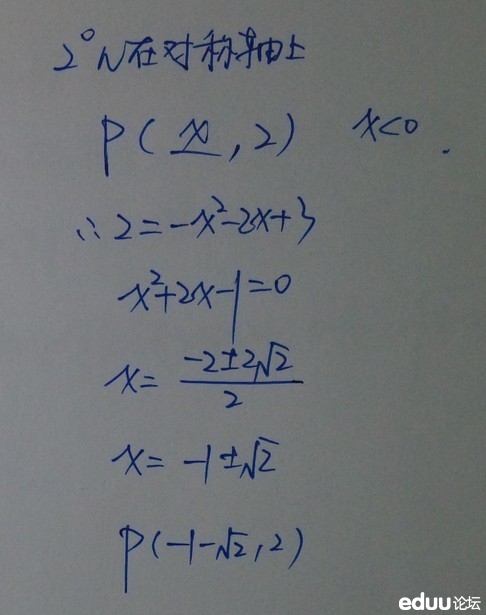 2° N在对称轴上
P(x,2) x<0.
∴2=-x²-2x+3
x²+2x-1=0
x=(-2±2√2)/2
x=-1±√2
P(-1-√2,2)
eduu论坛